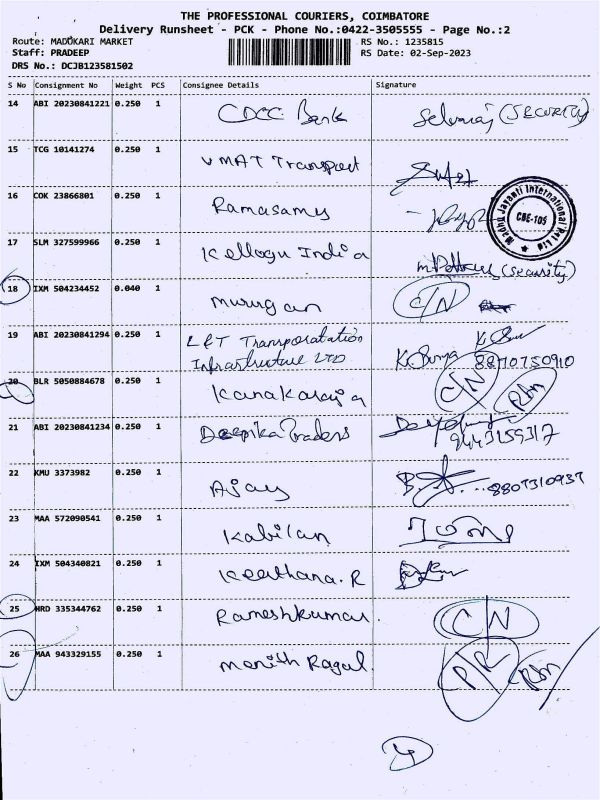 THE PROFESSIONAL COURIERS, COIMBATORE
Delivery Runsheet - PCK - Phone No.:0422-3505555 - Page No.:2
Route: MADUKARI MARKET RS No.: 1235815
Staff: PRADEEP RS Date: 02-Sep-2023
DRS No.: DCJB123581502
S No Consignment No Weight PCS Consignee Details Signature
14 ABI 20230841221 0.250 1 CDCC Bank Selvaraj (SECURITY)
15 TCG 10141274 0.250 1 VMAT Transport
16 COK 23866801 0.250 1 Ramasamy
Madhu Jayanti International Pvt Ltd
CBE-105
17 SLM 327599966 0.250 1 Kellogu India (Security)
18 IXM 504234452 0.040 1 Murugan C/N
19 ABI 20230841294 0.250 1 L&T Transporatation
Infrastructure LTD K. Surya 8870750910
20 BLR 5050884678 0.250 1 Kanakaraja C/N Rtn
21 ABI 20230841234 0.250 1 Deepika Traders
9443159317
22 KMU 3373982 0.250 1 Ajay 8807310937
23 MAA 572090541 0.250 1 Kabilan
24 IXM 504340821 0.250 1 Keerthana. R
25 HRD 335344762 0.250 1 Rameshkumar C/N
26 MAA 943329155 0.250 1 Manith Ragul P/R Rtn